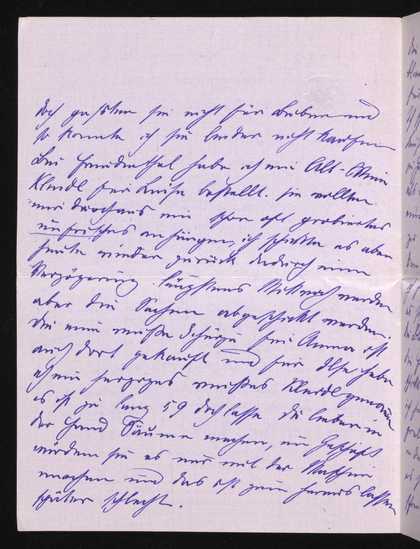 doch gehören sie nicht für Buben und
so konnte ich sie leider nicht kaufen
Bei habe ich ein Alt-Wien
Kleidl für Luise bestellt. Sie wollten
mir durchaus ein schon oft probiertes
unfrisches anhängen, ich schickte es aber
heute wieder zurück dadurch eine
Verzögerung. Längstens Mittwoch werden
aber die Sachen abgeschickt werden.
Die eine weiße Schürze für Anna ist
auch dort gekauft und für Ilse habe
ich ein weißes Kleidl genommen
es ist zu lang 59 doch lasse dir lieber in
der Hand Säume machen, im Geschäft
würden sie es nur mit der Maschine
machen und das ist zum herauslassen
später schlecht.